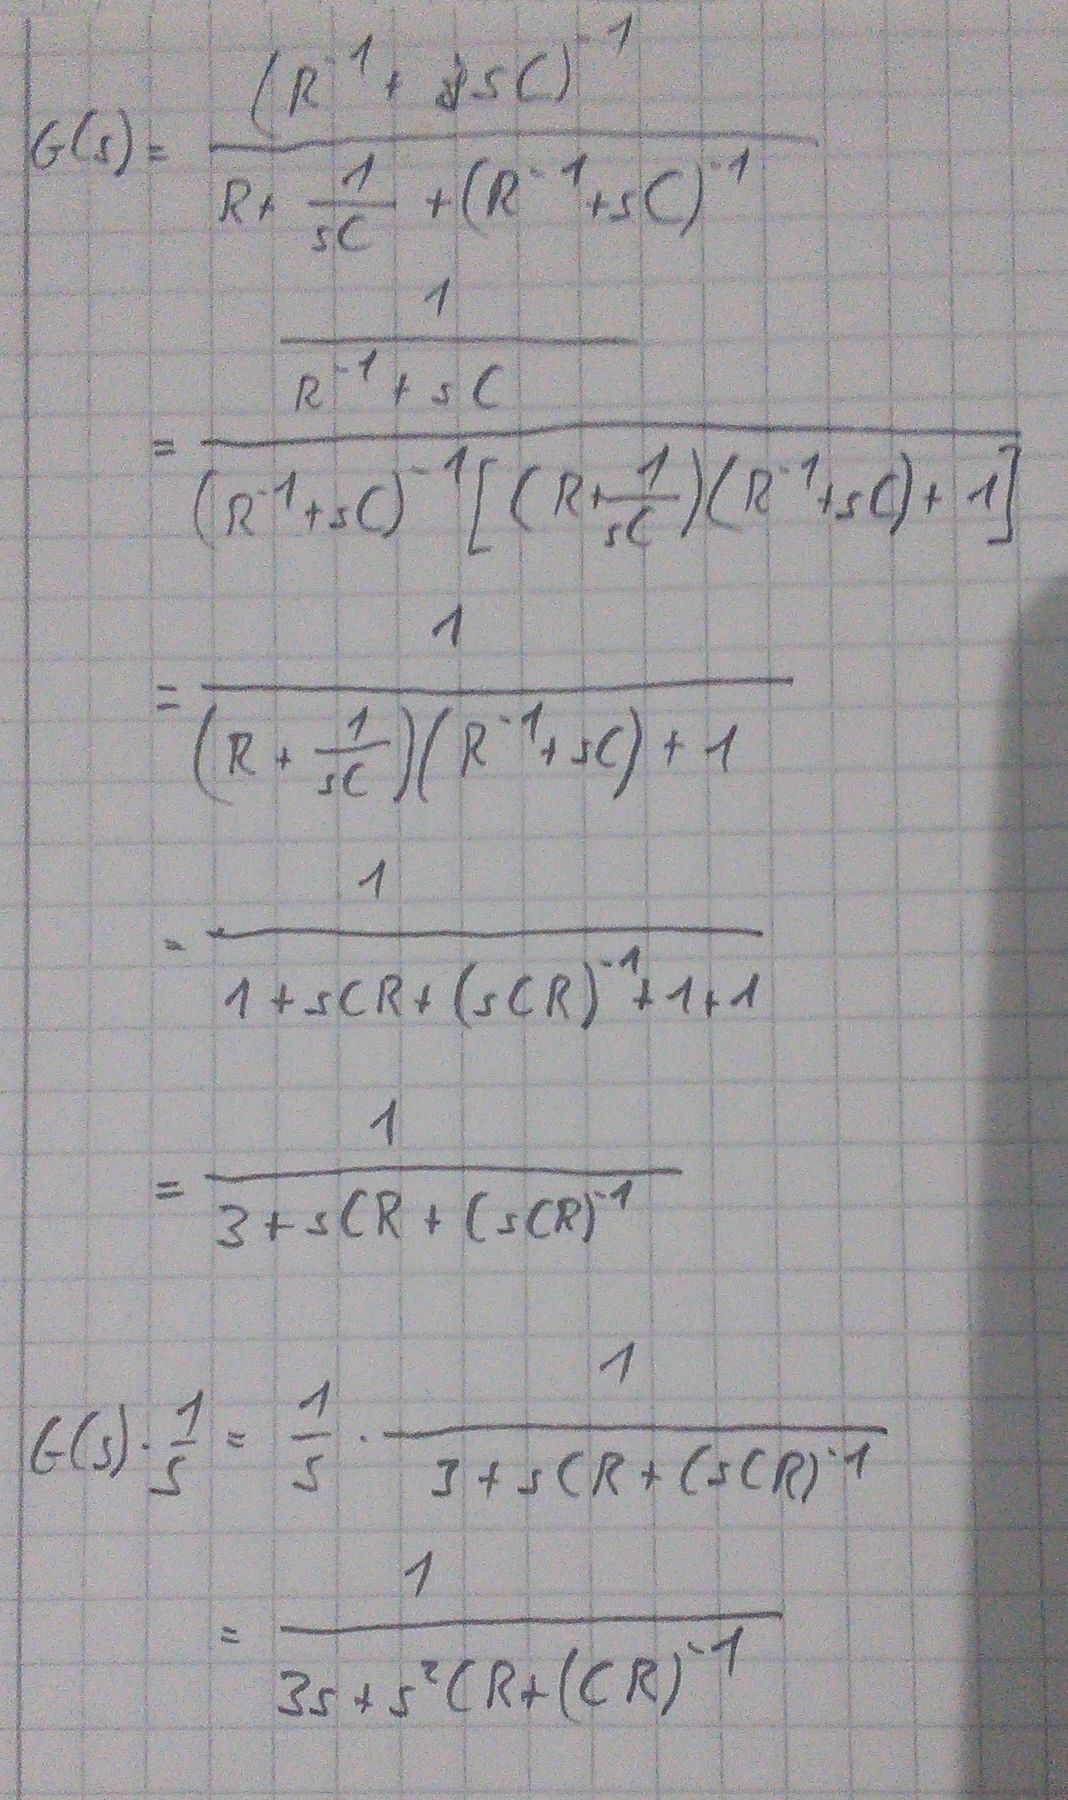 G(s) = \frac{(R^{-1} + sC)^{-1}}{R + \frac{1}{sC} + (R^{-1} + sC)^{-1}}
= \frac{\frac{1}{R^{-1} + sC}}{(R^{-1} + sC)^{-1} [(R + \frac{1}{sC})(R^{-1} + sC) + 1]}
= \frac{1}{(R + \frac{1}{sC})(R^{-1} + sC) + 1}
= \frac{1}{1 + sCR + (sCR)^{-1} + 1 + 1}
= \frac{1}{3 + sCR + (sCR)^{-1}}
G(s) \cdot \frac{1}{s} = \frac{1}{s} \cdot \frac{1}{3 + sCR + (sCR)^{-1}}
= \frac{1}{3s + s^2CR + (CR)^{-1}}